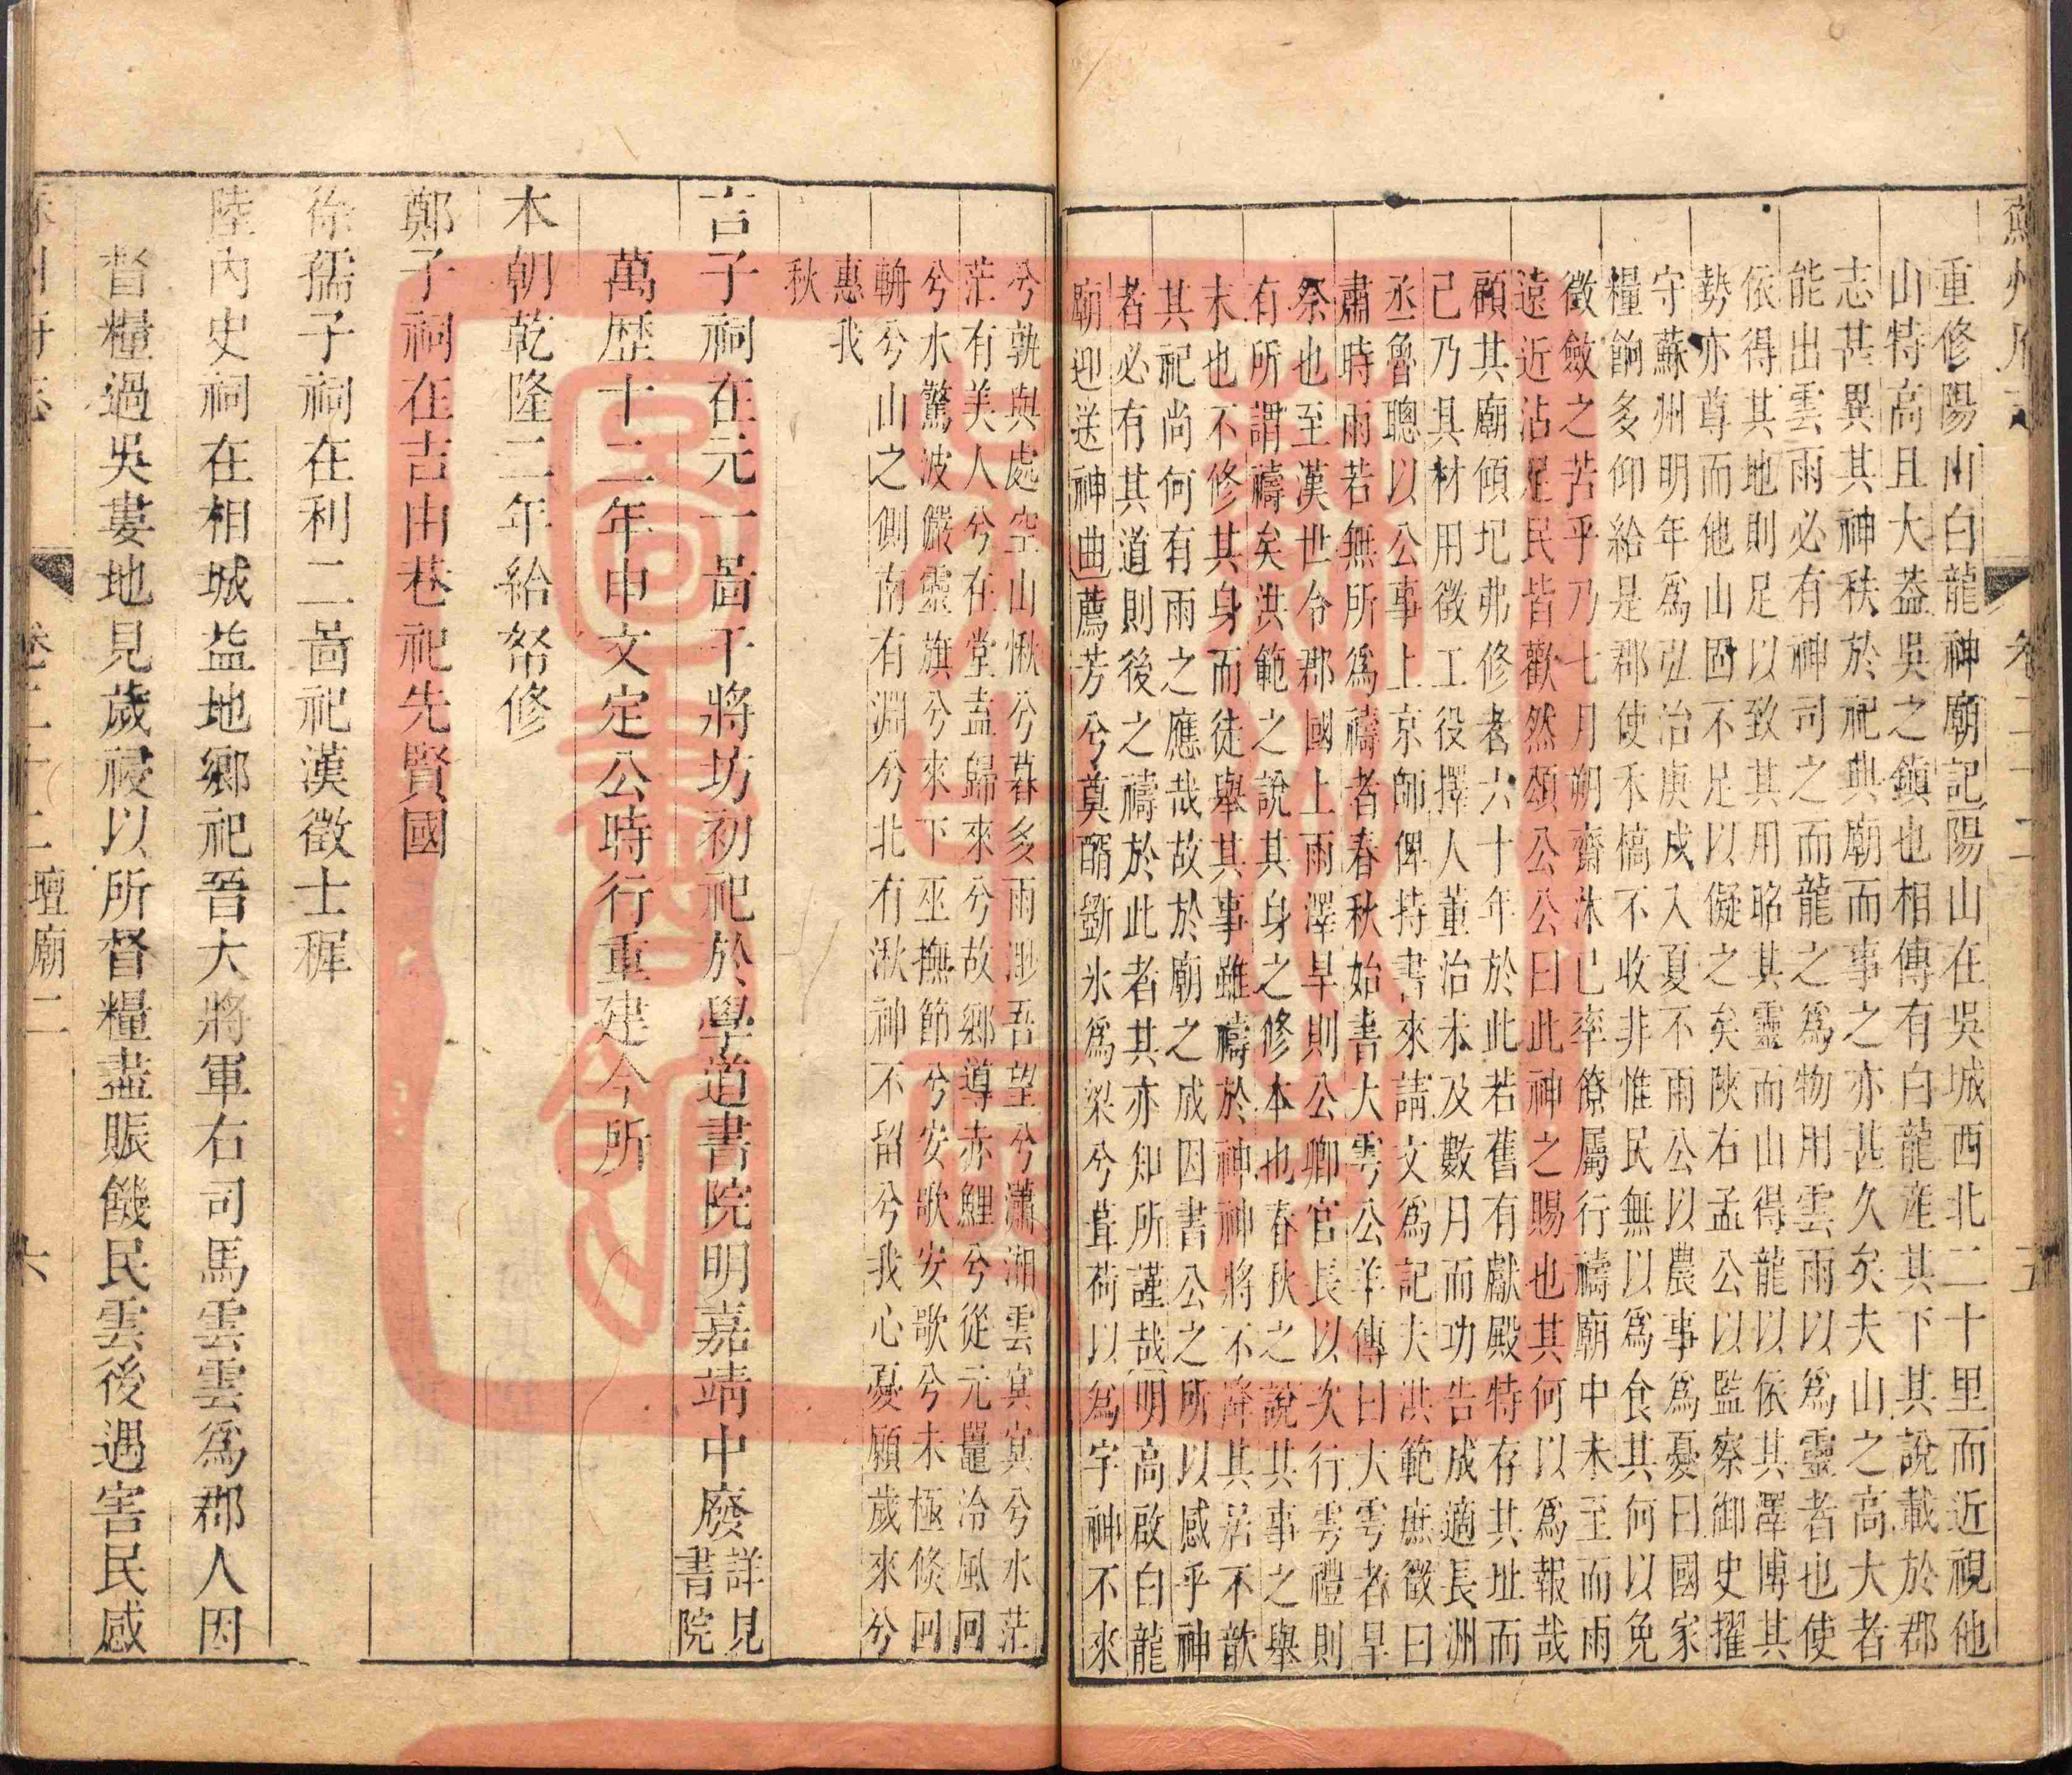 重修陽山白龍神廟記陽山在吳城西北二十里而近視他
山特高且大葢吳之鎮也相傳有白龍產其下其說載於郡
志甚異其神秩於祀典廟而事之亦甚久矣夫山之高大者
能出雲雨必有神司之而龍之為物用雲雨以為靈者也使
依得其地則足以致其用昭其靈而山得龍以依其澤博其
勢亦尊而他山固不足以儗之矣陝右孟公以監察御史擢
守蘇州明年為弘治庚戌入夏不雨公以農事為憂曰國家
糧餉多仰給是郡使禾槁不收非惟民無以為食其何以免
徵斂之苦乎乃七月朔齋沐已率僚屬行禱廟中未至而雨
遠近沾足民皆歡然頌公公曰此神之賜也其何以為報哉
顧其廟傾圯弗修者六十年於此若舊有獻殿特存其址而
已乃具材用徵工役擇人董治未及數月而功告成適長洲
丞魯聰以公事上京師俾持書來請文為記夫洪範庶徵曰
肅時雨若無所為禱者春秋始書大雩公羊傳曰大雩者旱
祭也至漢世令郡國上雨澤旱則公卿官長以次行雩禮則
有所謂禱矣洪範之說其身之修本也春秋之說其事之舉
末也不修其身而徒舉其事雖禱於神神將不濟其居不歆
其祀尚何有雨之應哉故於廟之成因書公之所以感乎神
者必有其道則後之禱於此者其亦知所謹哉明高啟白龍
廟迎送神曲薦芳兮奠醑斵氷為梁兮葺荷以為宇神不來
兮孰與處空山愀兮暮多雨渺吾望兮瀟湘雲㝠㝠兮水茫
茫有美人兮在堂盍歸來兮故鄉導赤鯉兮從元鼉泠風回
兮水驚波儼靈旗兮來下巫撫節兮安歌安歌兮未極倏回
輈兮山之側南有淵兮北有湫神不留兮我心憂願歲來兮
惠我
秋
言子祠在元一啚干將坊初祀於學道書院明嘉靖中廢詳見
書院
萬歴十二年申文定公時行重建今所
本朝乾隆二年給帑修
鄭子祠在吉由巷祀先賢國
徐孺子祠在利二啚祀漢徵士穉
陸內史祠在相城益地鄉祀晉大將軍右司馬雲雲為郡人因
督糧過吳婁地見歲祲以所督糧盡賑饑民雲後遇害民感
壇廟二
六